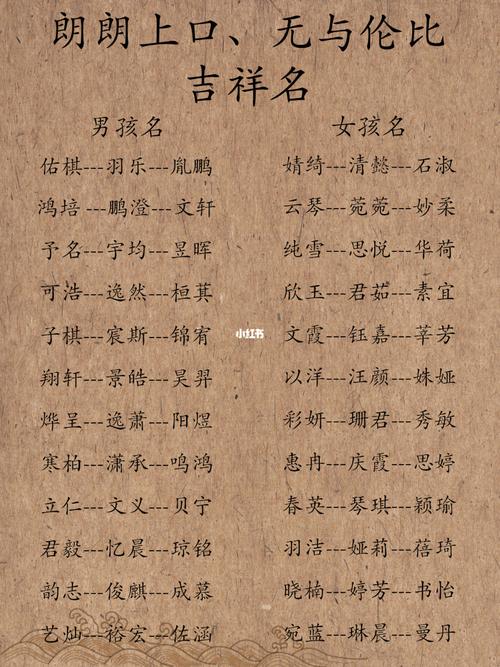 朗朗上口、无与伦比
吉祥名
男孩名
佑棋---羽乐---胤鹏
鸿培---鹏澄---文轩
予名---宇均---昱晖
可浩---逸然---桓萁
子棋---宸斯---锦宥
翔轩---景皓---昊羿
烨呈---逸萧---阳煜
寒柏---潇承---鸣鸿
立仁---文义---贝宁
君毅---忆晨---琼铭
韵志---俊麒---成慕
艺灿---裕宏---佐涵
女孩名
婧绮---清懿---石淑
云琴---菀菀---妙柔
纯雪---思悦---华荷
欣玉---君茹---素宜
文霞---钰嘉---莘芳
以洋---汪颜---姝娅
彩妍---珊君---秀敏
惠冉---庆霞---思婷
春英---琴琪---颖瑜
羽洁---娅莉---蓓琦
晓楠---婷芳---书怡
宛蓝---琳晨---曼丹
小红书